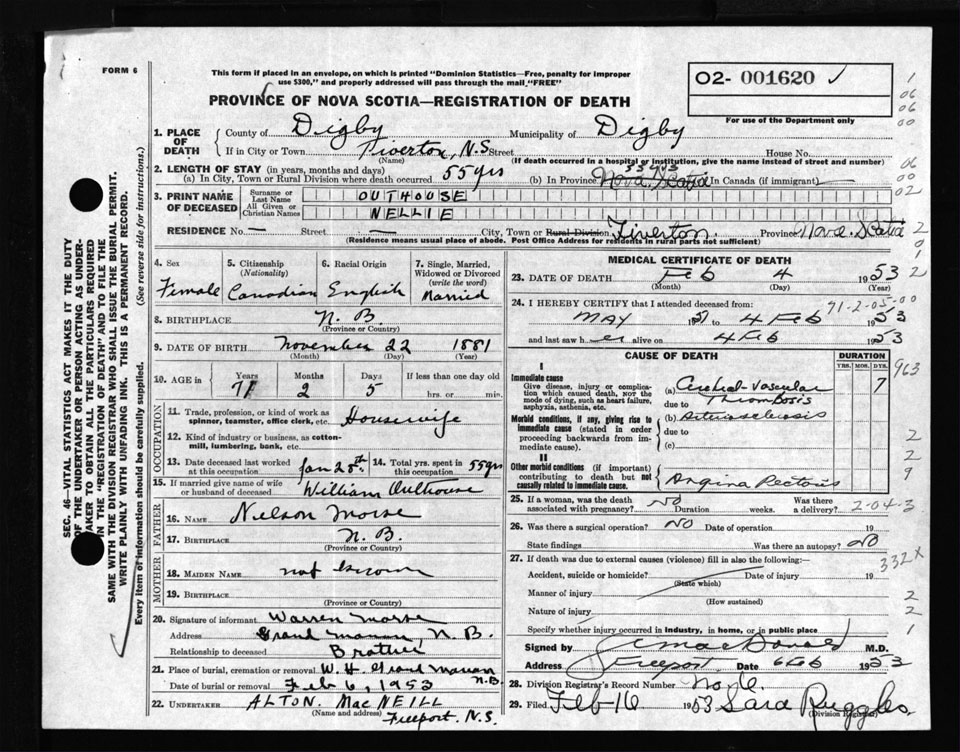 FORM 6
This form if placed in an envelope, on which is printed "Dominion Statistics—Free, penalty for improper
use $300," and properly addressed will pass through the mail "FREE"
PROVINCE OF NOVA SCOTIA—REGISTRATION OF DEATH
O2- 001620 √
For use of the Department only
1. PLACE OF DEATH { County of Digby Municipality of Digby
If in City or Town Tiverton, N.S. Street House No.
(Name) (If death occurred in a hospital or institution, give the name instead of street and number)
2. LENGTH OF STAY (in years, months and days)
(a) In City, Town or Rural Division where death occurred 55 yrs (b) In Province Nova Scotia In Canada (if immigrant) —
3. PRINT NAME OF DECEASED { Surname or Last Name OUTHOUSE
All Given or Christian Names NELLIE
RESIDENCE No. — Street — City, Town or Rural Division Tiverton. Province Nova Scotia
(Residence means usual place of abode. Post Office Address for residents in rural parts not sufficient)
4. Sex Female
5. Citizenship (Nationality) Canadian
6. Racial Origin English
7. Single, Married, Widowed or Divorced (write the word) Married
8. BIRTHPLACE N. B.
(Province or Country)
9. DATE OF BIRTH November 22 1881
(Month) (Day) (Year)
10. AGE in Years 71 Months 2 Days 5 If less than one day old
hrs. or min.
OCCUPATION
11. Trade, profession, or kind of work as spinner, teamster, office clerk, etc. Housewife
12. Kind of industry or business, as cotton-mill, lumbering, bank, etc.
13. Date deceased last worked at this occupation Jan 28th
14. Total yrs. spent in this occupation 55 yrs
15. If married give name of wife or husband of deceased William Outhouse
FATHER
16. NAME Nelson Morse
17. BIRTHPLACE N. B.
(Province or Country)
MOTHER
18. MAIDEN NAME not known
19. BIRTHPLACE
(Province or Country)
20. Signature of informant Warren Morse
Address Grand Manan, N. B.
Relationship to deceased Brother
21. Place of burial, cremation or removal W. H. Grand Manan N.B.
Date of burial or removal Feb 6, 1953
22. UNDERTAKER ALTON. MacNEILL
(Name and address) Freeport, N.S.
MEDICAL CERTIFICATE OF DEATH
23. DATE OF DEATH Feb 4 1953
(Month) (Day) (Year)
24. I HEREBY CERTIFY that I attended deceased from:
91-2-05-00
MAY 1951 to 4 Feb 1953
and last saw her alive on 4 Feb 1953
CAUSE OF DEATH
DURATION
YRS. MOS. DYS.
I
Immediate cause
Give disease, injury or complication which caused death, NOT the mode of dying, such as heart failure, asphyxia, asthenia, etc.
(a) Cerebral-Vascular Thrombosis 7
due to
Morbid conditions, if any, giving rise to immediate cause (stated in order proceeding backwards from immediate cause).
(b) Arteriosclerosis
due to
(c)
II
Other morbid conditions (if important) contributing to death but not causally related to immediate cause.
Angina Pectoris
25. If a woman, was the death associated with pregnancy? NO Duration weeks. Was there a delivery? 2-04-3
26. Was there a surgical operation? NO Date of operation 19
State findings Was there an autopsy? NO
27. If death was due to external causes (violence) fill in also the following:—
332X
Accident, suicide or homicide? Date of injury 19
(State which)
Manner of injury
(How sustained)
Nature of injury
Specify whether injury occurred in industry, in home, or in public place
Signed by MacDonald M.D.
Address Freeport Date 6 Feb 1953
28. Division Registrar's Record Number No 6.
29. Filed Feb 16 1953 Sara Ruggles
(Division Registrar)
SEC. 46—VITAL STATISTICS ACT MAKES IT THE DUTY
OF THE UNDERTAKER OR PERSON ACTING AS UNDER-
TAKER TO OBTAIN ALL THE PARTICULARS REQUIRED
IN THE "REGISTRATION OF DEATH" AND TO FILE THE
SAME WITH THE DIVISION REGISTRAR WHO SHALL ISSUE THE BURIAL PERMIT.
WRITE PLAINLY WITH UNFADING INK. THIS IS A PERMANENT RECORD.
Every item of information should be carefully supplied. (See reverse side for instructions.)
1
06
06
00
06
00
02
2
0
1
2
963
2
2
9
2
2
1